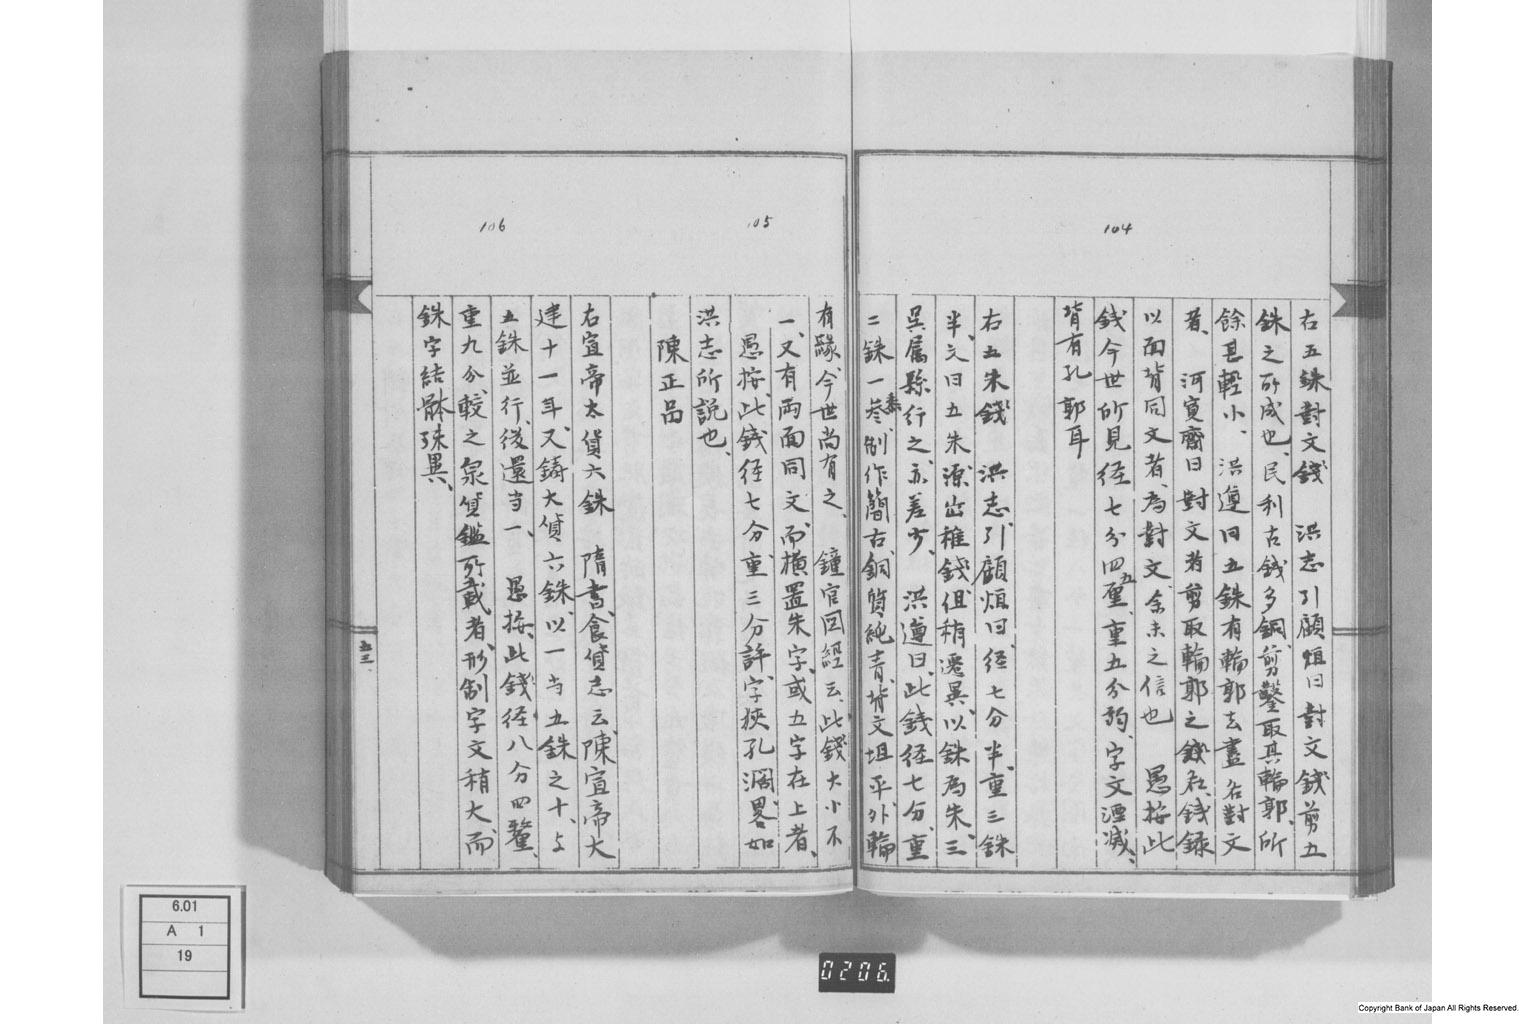 104
右五銖對文錢　洪志引顧烜曰對文錢剪五
銖之所成也、民利古錢多銅、剪鑿取其輪郭、所
餘甚輕小、　洪遵曰五銖有輪郭去盡名對文
者、　河寛齋曰對文者剪取輪郭之錢在錢録
以面背同文者、為對文、余未之信也　愚按此
錢今世所見径七分四五厘、重五分弱、字文湮滅、
背有孔郭耳
右五朱錢　洪志引顧烜曰径七分半重三銖
半、文曰五朱、源出稚錢、但稍遷異、以銖為朱、三
呉属縣行之、亦差少、　洪遵曰此錢径七分、重
二銖一絫、制作簡古、銅質純青、背文坦平、外輪
105
有縁、今世尚有之、　鐘官圖經云、此錢大小不
一、又有両面同文、而横置朱字、或五字在上者、
愚按、此錢径七分、重三分許、字狹孔濶、畧如
洪志所説也、
陳正品
106
右宣帝太貨六銖　隋書食貨志云、陳宣帝大
建十一年、又鋳大貨六銖、以一当五銖之十、与
五銖並行、後還当一、　愚按、此錢径八分四釐、
重九分、較之泉貨鑑所載者、形制字文稍大、而
銖字結躰殊異、
五三
6.01
A 1
19
0206.
Copyright Bank of Japan All Rights Reserved.